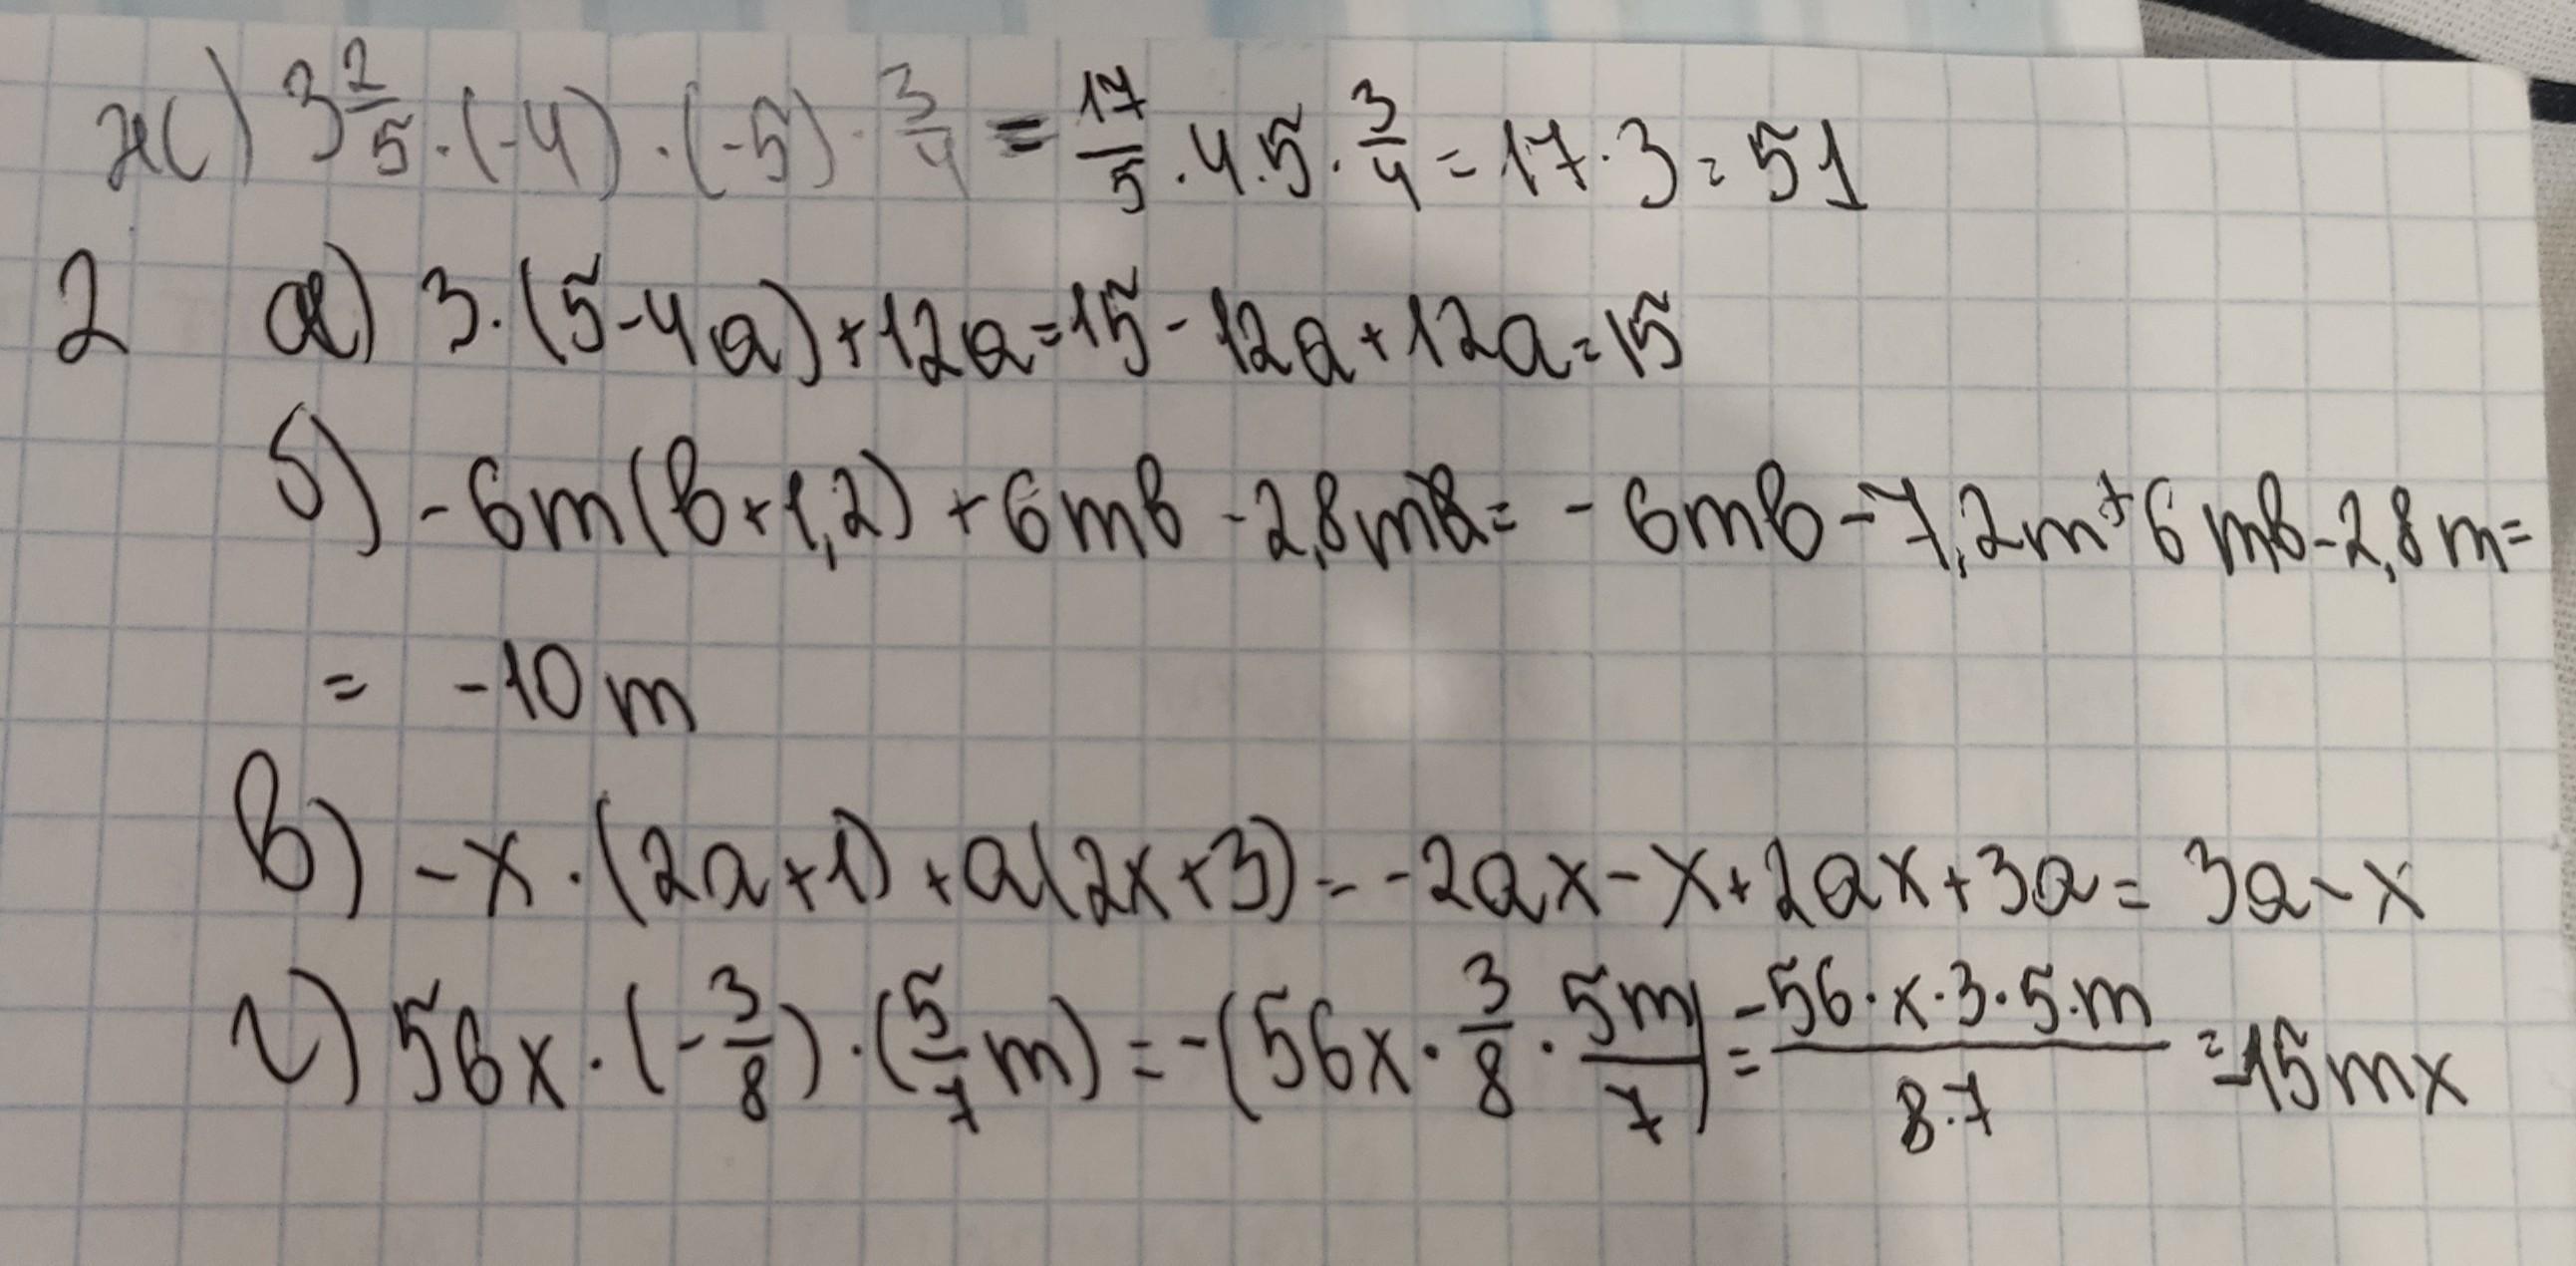 ж) 3 2/5 · (-4) · (-5) · 3/4 = 17/5 · 4 · 5 · 3/4 = 17 · 3 = 51
2 а) 3 · (5 - 4a) + 12a = 15 - 12a + 12a = 15
б) -6m(b + 1,2) + 6mb - 2,8m = -6mb - 7,2m + 6mb - 2,8m =
= -10m
в) -x · (2a + 1) + a(2x + 3) = -2ax - x + 2ax + 3a = 3a - x
г) 56x · (-3/8) · (5/7 m) = -(56x · 3/8 · 5m/7) = -56 · x · 3 · 5 · m / 8 · 7 = -15mx